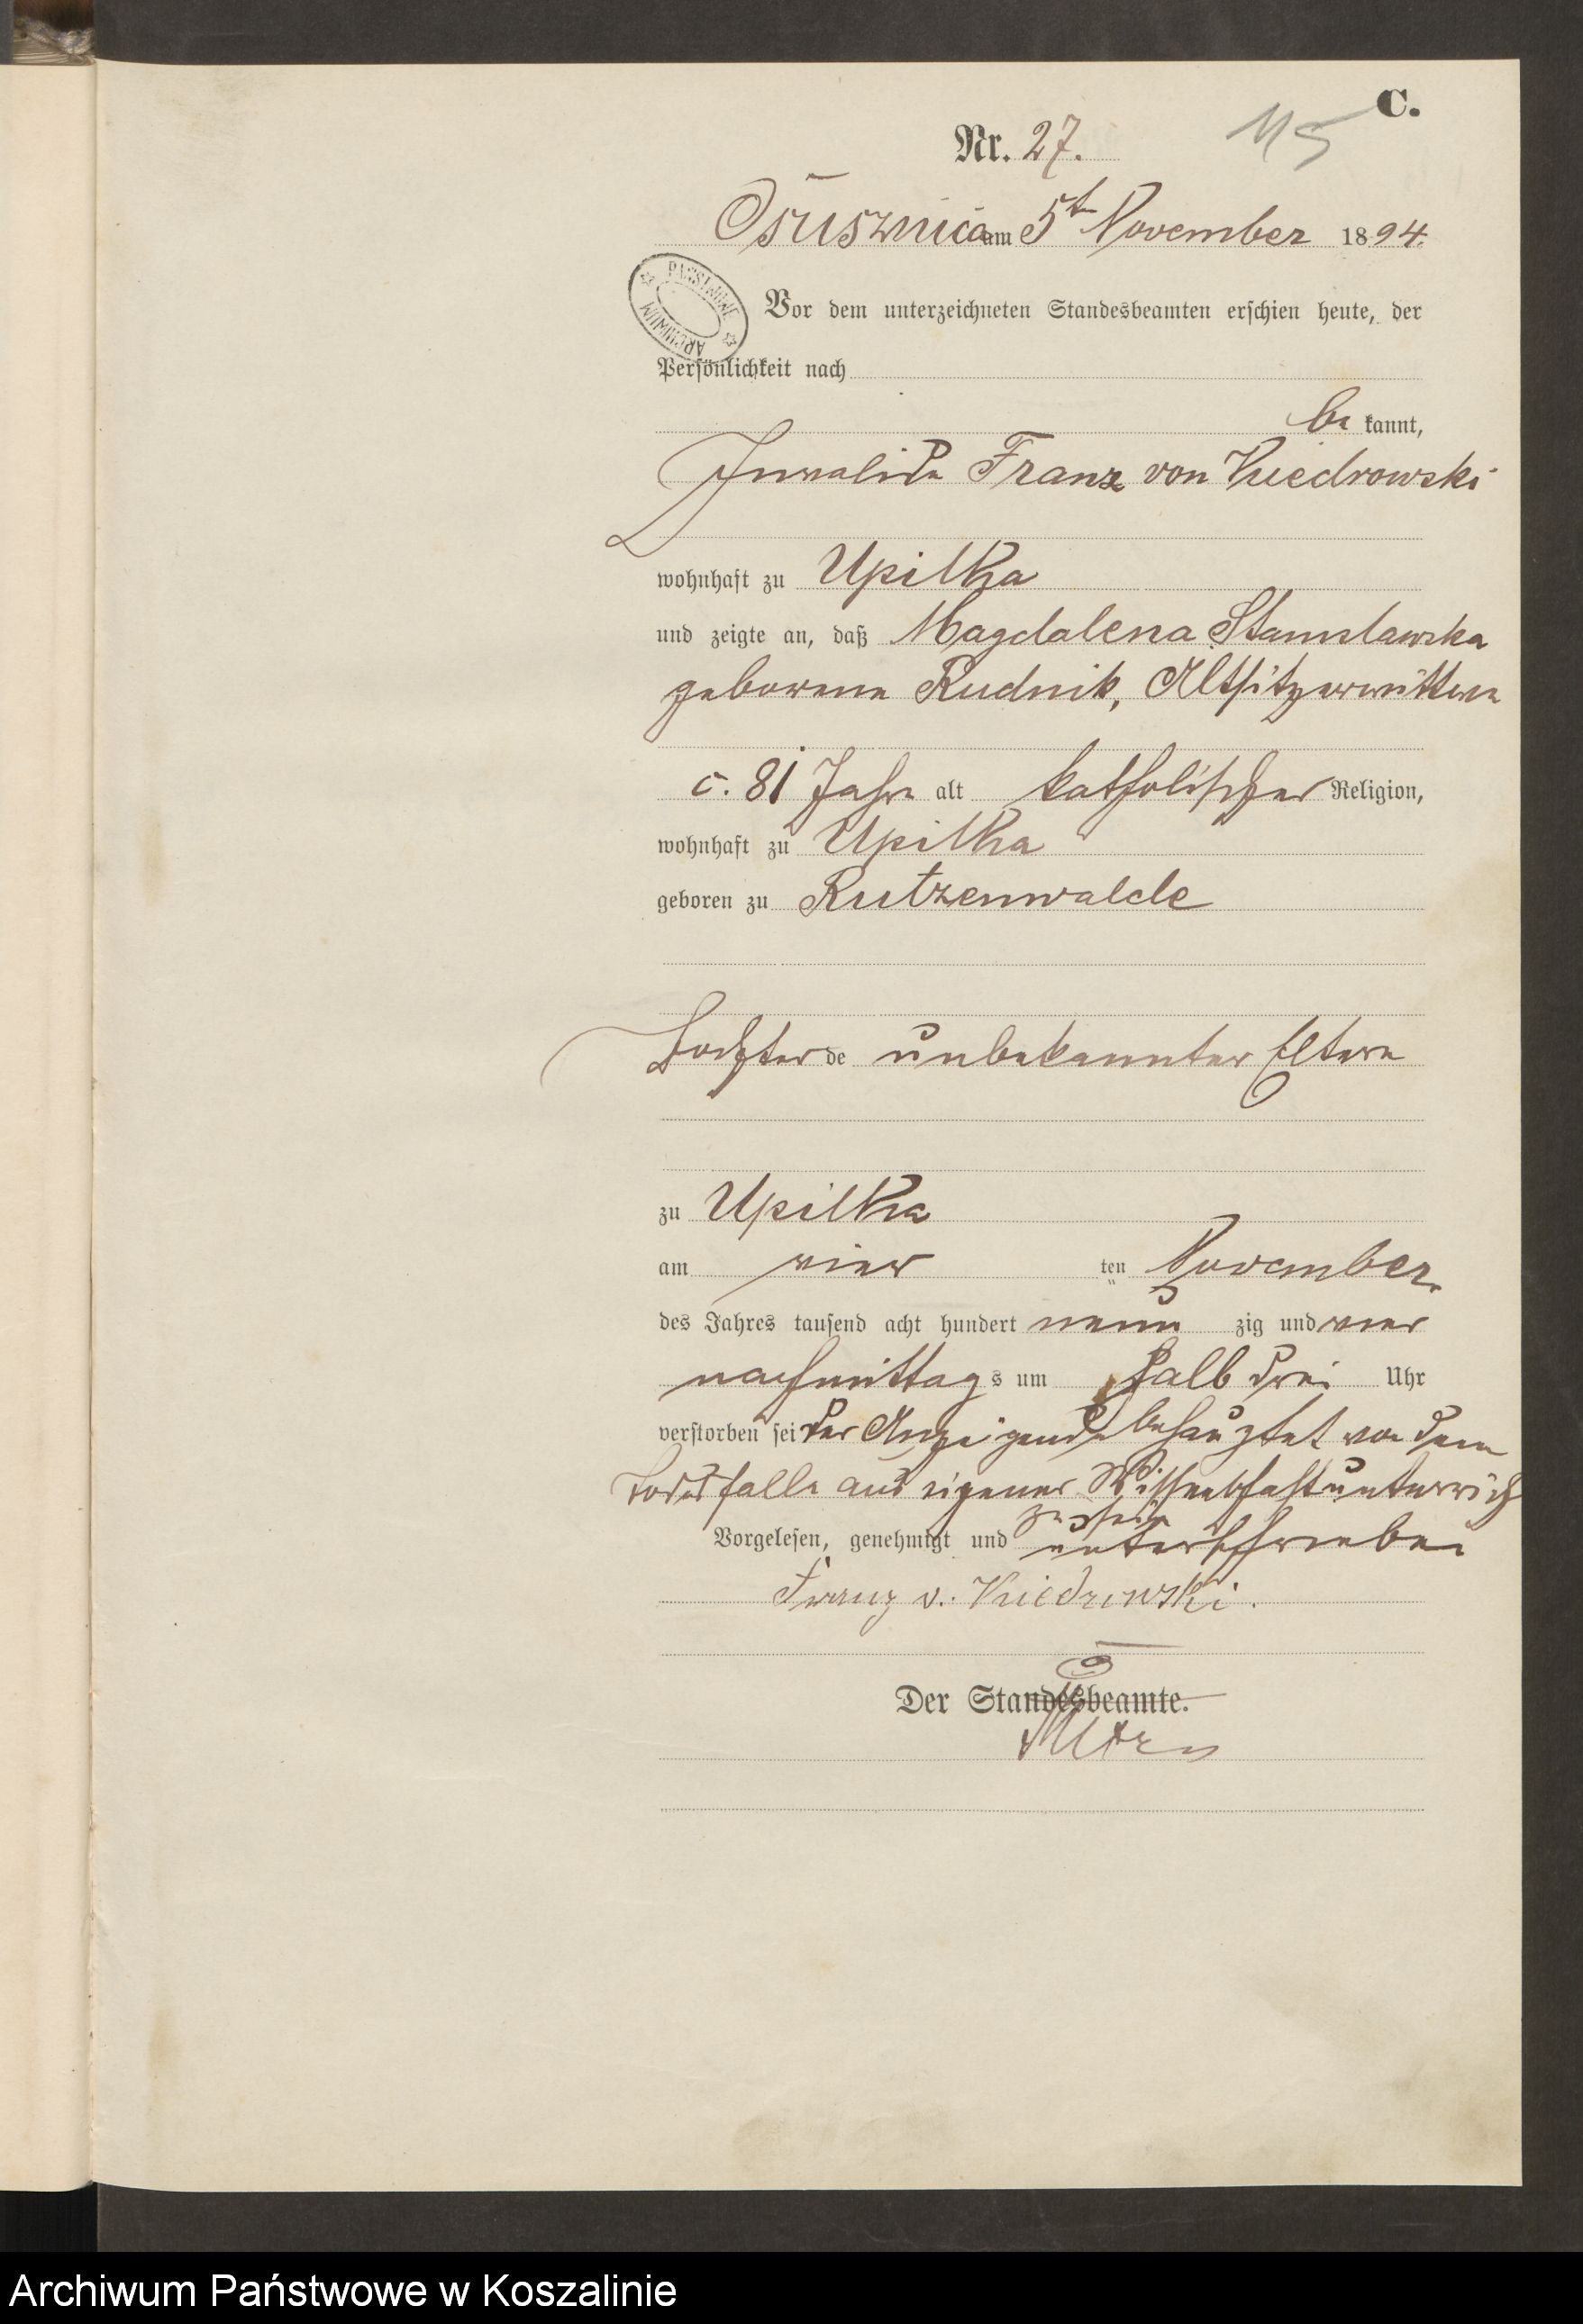 C.
115
Nr. 27.
Osusznica am 5t November 1894.
PAŃSTWOWE ARCHIWUM
Vor dem unterzeichneten Standesbeamten erschien heute, der
Persönlichkeit nach
be kannt,
Invalide Franz von Kiedrowski
wohnhaft zu Upilka
und zeigte an, daß Magdalena Stanislawska
geborene Rudnik, Altsitzerwittwe
c. 81 Jahre alt katholischer Religion,
wohnhaft zu Upilka
geboren zu Rutzenwalde
Tochter de unbekannter Eltern
zu Upilka
am vier ten November
des Jahres tausend acht hundert neun zig und vier
nachmittag s um halb drei Uhr
verstorben sei der Anzeigende behauptet von dem
Todesfalle aus eigener Wissenschaft unterrich
zu sein
Vorgelesen, genehmigt und unterschrieben
Franz v. Kiedrowski.
Der Standesbeamte.
Archiwum Państwowe w Koszalinie